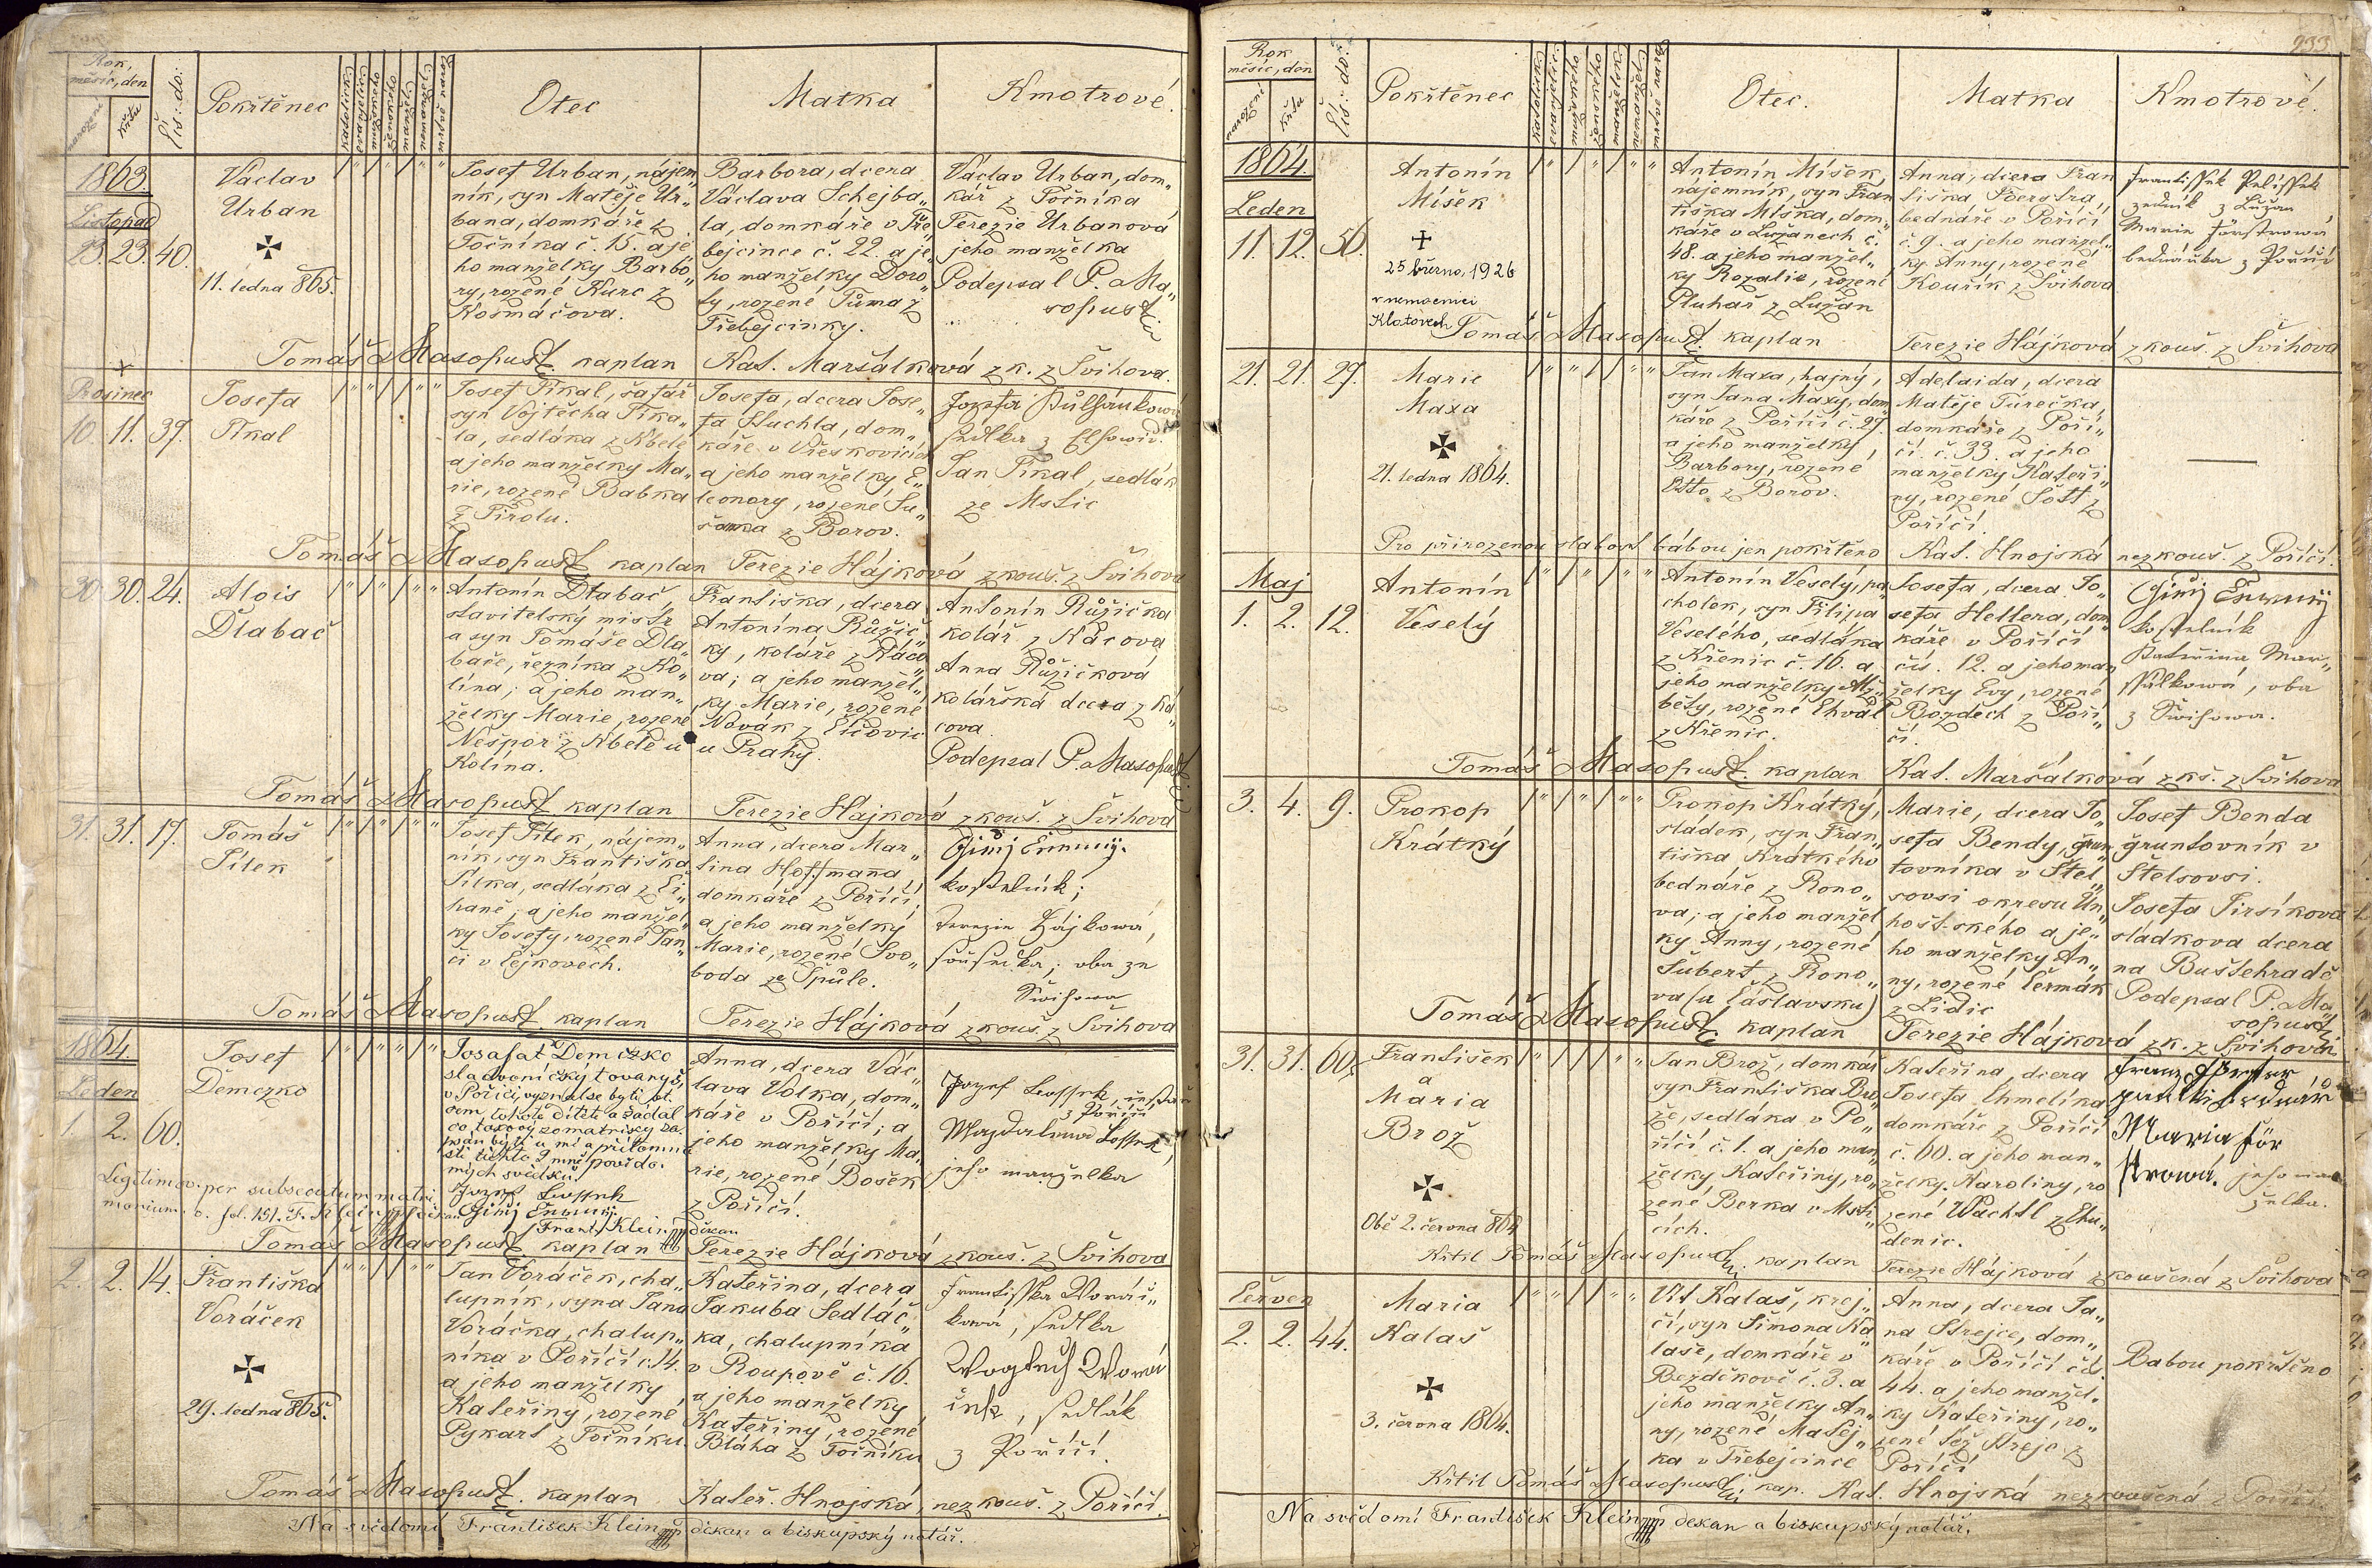 Rok,
měsíc, den
narození
křtu
čís: do:
Pokřtěnec
Otec
Matka
Kmotrové.
1863.
Listopad
23. 23. 40.
Václav
Urban
11. ledna 865.
Josef Urban, nájem„
ník, syn Matěje Ur„
bana, domkáře z
Točníka č. 15. a je„
ho manželky Barbo„
ry, rozené Kurc z
Kosmáčova.
Barbora, dcera
Václava Schejba„
la, domkáře v Tře„
bejcince č. 22. a je„
ho manželky Doro„
ty, rozené Tůma z
Třebejcinky.
Václav Urban, dom„
kář z Točníka
Terezie Urbanová
jeho manželka
Podepsal P. Ma„
sopust
Tomáš Masopust kaplan Kat. Maršálková zk. z Švihova.
Prosinec
10. 11. 37.
Josefa
Pikal
Josef Pikal, šafář
syn Vojtěcha Pika„
la, sedláka z Kbele
a jeho manželky Ma„
rie, rozené Babka
z Tirolu.
Josefa, dcera Jose„
fa Suchla, dom„
káře v Vřeskovicích
a jeho manželky E„
leonory, rozené Su„
šanka z Borov.
Jan Pikal, sedlák
ze Mstic
Tomáš Masopust kaplan Terezie Hájková zkouš. z Švihova
30. 30. 24.
Alois
Dlabač
Antonín Dlabač,
stavitelský mistr
a syn Tomáše Dla„
bače, řezníka z Ko„
lína; a jeho man„
želky Marie, rozené
Nešpor z Kbele u
Kolína.
Františka, dcera
Antonína Růžič„
ky, koláře z Káco„
va; a jeho manžel„
ky Marie, rozené
Novák z Číčovic
u Prahy.
Antonín Růžička
kolář z Kácova
Anna Růžičková
kolářská dcera z Ká„
cova.
Podepsal P. Masopust
Tomáš Masopust kaplan Terezie Hájková zkouš. z Švihova
31. 31. 17.
Tomáš
Pítek
Josef Pítek, nájem„
ník, syn Františka
Pítka, sedláka z Či„
haně; a jeho manžel„
ky Josefy, rozené Jan„
či v Čejkovech.
Anna, dcera Mar„
tina Hoffmana,
domkáře z Poříčí;
a jeho manželky
Marie, rozené Svo„
boda ze Špůle.
kostelník;
Terezie Hájkowá,
oba ze
Šwihowa
Tomáš Masopust kaplan Terezie Hájková zkouš. z Švihova
1864.
Leden
1. 2. 60.
Josef
Demczko
Josafat Demczko
sladovnický tovaryš,
v Poříčí, vyznal se býti ot„
cem tohoto dítěte a žádal
co takový do matriky za„
psán býti u mě a přítomno„
sti těchto 2 mně povědo„
mých svědků.
Frant. Klein děkan
Anna, dcera Vác„
lava Volka, dom„
káře v Poříčí; a
jeho manželky Ma„
rie, rozené Bošek
z Poříčí.
z Poříčí,
Magdalena
jeho manželka
Legitimov. per subsecutum matri„
monium
Tomáš Masopust kaplan Terezie Hájková zkouš. z Švihova
2. 2. 14.
Františka
Voráček
29. ledna 865.
Jan Voráček, cha„
lupník, syna Jana
Voráčka, chalup„
níka v Poříčí č. 14.
a jeho manželky
Kateřiny, rozené
Pykart z Točníku.
Kateřina, dcera
Jakuba Sedláč„
ka, chalupníka
v Roupově č. 16.
a jeho manželky
Kateřiny, rozené
Bláha z Točníku
Františka Woráč„
kowá, sedlka
Wogtěch Worá„
ček, sedlák
z Poříčí.
Tomáš Masopust. kaplan Kateř. Hnojská, nezkouš. z Poříčí.
Na svědomí František Klein děkan a biskupský notář.
233
Rok
měsíc, den
narození
křtu
čís: do:
Pokřtěnec
Otec.
Matka
Kmotrové.
1864.
Leden
11. 12. 50.
Antonín
Míšek
25 března, 1926
v nemocnici
Klatovech
Antonín Míšek,
nájemník, syn Fran„
tiška Míška, dom„
káře v Lužanech č.
48. a jeho manžel„
ky Rozalie, rozené
Pluhař z Lužan
Anna, dcera Fran„
tiška Foerstra,
bednáře v Poříčí
č. 9. a jeho manžel„
ky Anny, rozené
Kouřík z Švihova
zedník z Lužan
Marie Förstrowá
bednářka z Poříčí
Tomáš Masopust kaplan Terezie Hájková zkouš. z Švihova
21. 21. 29.
Marie
Maxa
21. ledna 1864.
Jan Maxa, hajný,
syn Jana Maxy, dom„
káře z Poříčí č. 29
a jeho manželky,
Barbory, rozené
Otto z Borov.
Adelaida, dcera
Matěje Turečka,
domkáře z Poří„
čí č. 33. a jeho
manželky Kateři„
ny, rozené Šott z
Poříčí
Pro přirozenou slabost bábou jen pokřtěno Kat. Hnojská nezkouš. z Poříčí.
Maj
1. 2. 12.
Antonín
Veselý
Antonín Veselý, pa„
cholek, syn Filipa
Veselého, sedláka
z Křenic č. 10. a
jeho manželky Alž„
běty, rozené Chval
z Křenic.
Josefa, dcera Jo„
sefa Hellera, dom„
káře v Poříčí
čís. 12. a jeho man„
želky Evy, rozené
Bozděch z Poří„
čí.
kostelník
Kateřina Mar„
ššálkowá, oba
z Šwihowa.
Tomáš Masopust kaplan Kat. Maršálková zkš. z Švihova
3. 4. 9.
Prokop
Krátký
Prokop Krátký,
sládek, syn Fran„
tiška Krátkého
bednáře z Rono„
va; a jeho manžel„
ky Anny, rozené
Šubert z Rono„
va (u Čáslavsku)
Marie, dcera Jo„
sefa Bendy, grun„
tovníka v Stel„
sovsi okresu Un„
hošťského a je„
ho manželky An„
ny, rozené Čermák
z Lidic
Josef Benda
gruntovník v
Stelsovsi.
Josefa Jirsíkova
sládkova dcera
na Buštehradě
Podepsal P. Ma„
sopust
Tomáš Masopust kaplan Terezie Hájková zk. z Švihova
31. 31. 60.
František
a
Maria
Brož
Obě 2. června 864
Jan Brož, domkář
syn Františka Bro„
že, sedláka v Po„
říčí č. 1. a jeho man„
želky Kateřiny, ro„
zené Berka v Msti„
cích.
Kateřina, dcera
Josefa Chmelíka
domkáře z Poříčí
č. 60. a jeho man„
želky Karoliny, ro„
zené Wachtl z Chu„
denic.
Franz Förster
Maria För
strowá. jeho man„
želka.
Křtil Tomáš Masopust kaplan Terezie Hájková zkoušená z Švihova
Červen
2. 2. 44.
Maria
Kalaš
3. června 1864.
Vít Kalaš, krej„
čí, syn Šimona Ka„
laše, domkáře v
Bezděkově č. 3. a
jeho manželky An„
ny, rozené Matěj„
ka v Třebejcince
Anna, dcera Ja„
na Strejce, dom„
káře v Poříčí čís.
44. a jeho manžel„
ky Kateřiny, ro„
zené též Strejc z
Poříčí
Babou pokřtěno
Křtil Tomáš Masopust kap. Kat. Hnojská nezkoušená z Poříčí
Na svědomí František Klein děkan a biskupský notář.